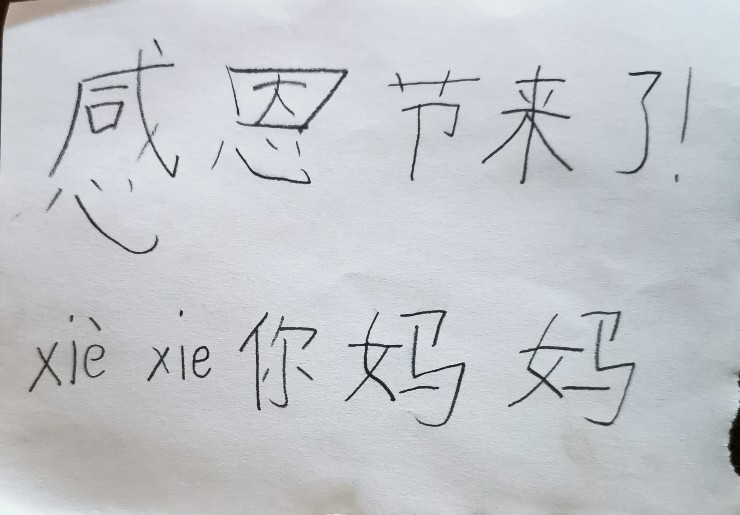 感恩节来了!
xiè xie你妈妈